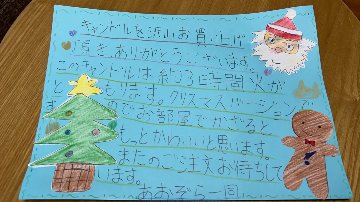 キャンドルを沢山お買い上げ
頂きありがとうございます。
このキャンドルは約33時間火が
ともります。クリスマスバージョンで
すのでお部屋でかざると
もっとかわいいと思います。
またのご注文お待ちして
います。
あおぞら一同